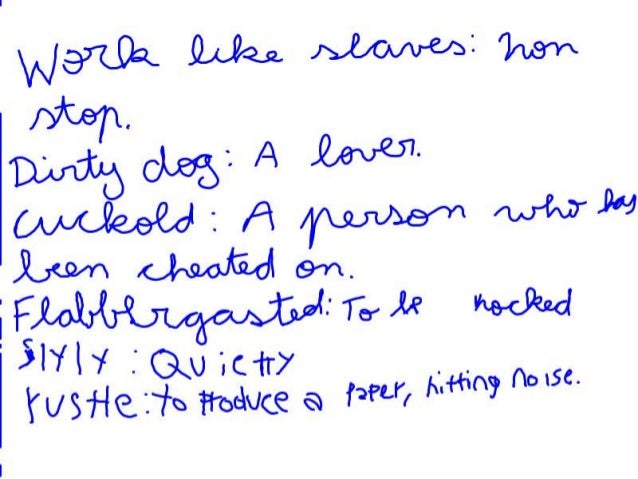 Work like slaves: non
stop.
Dirty dog: A lover.
Cuckold: A person who has
been cheated on.
Flabbergasted: To be nocked
Slyly: Quietly
rustle: to produce a paper, hitting noise.